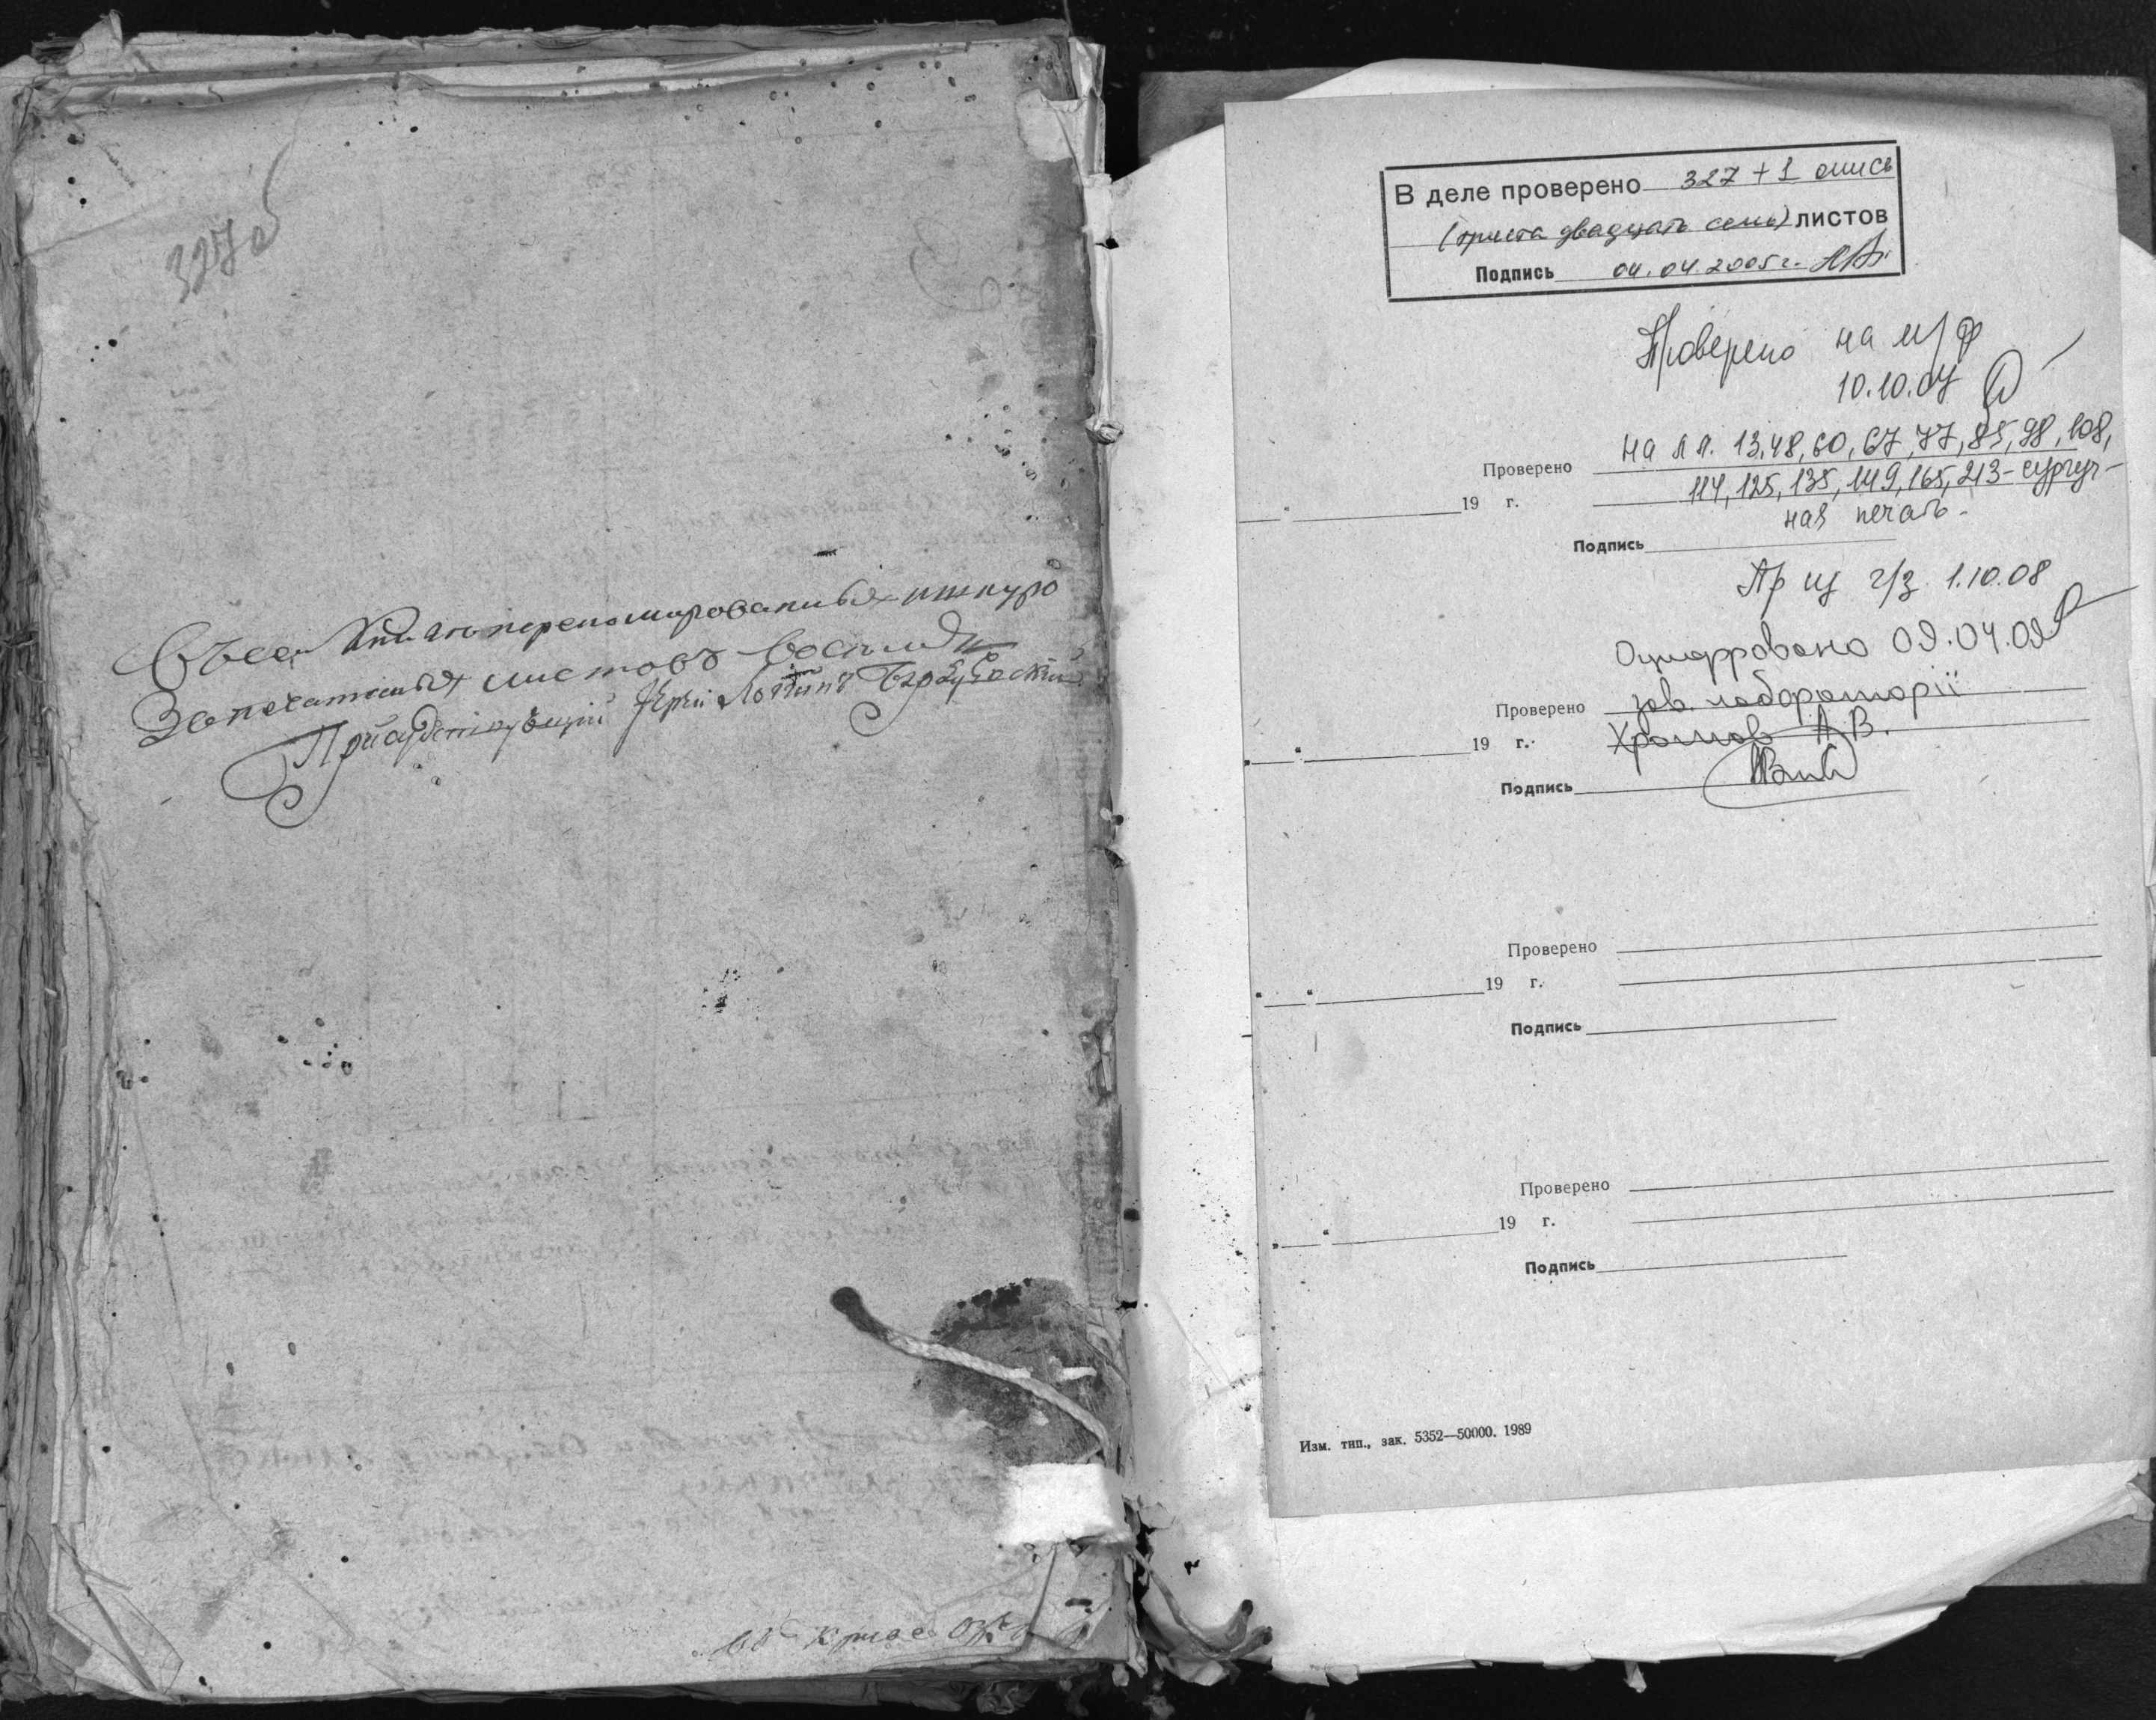 327 об
Въсей книги переномированныхъ шнуро
Запечатаныхъ листовъ восемъдь
Присудствующій Іерей Логинъ
В деле проверено 327 + 1 опись
(триста двадцать семь) листов
Подпись 04.04.2005 г.
Проверено на м/ф
10.10.07
Проверено на лл. 13, 48, 60, 67, 77, 85, 98, 108,
114, 125, 135, 149, 165, 213 - сургуч-
19 г.
ная печать.
Подпись
Пр 1.10.08
Оцифровано 09.04.09
Проверено зав. лабораторії
19 г. Хромов А.В.
Подпись
Проверено
19 г.
Подпись
Проверено
19 г.
Подпись
Изм. тип., зак. 5352—50000. 1989